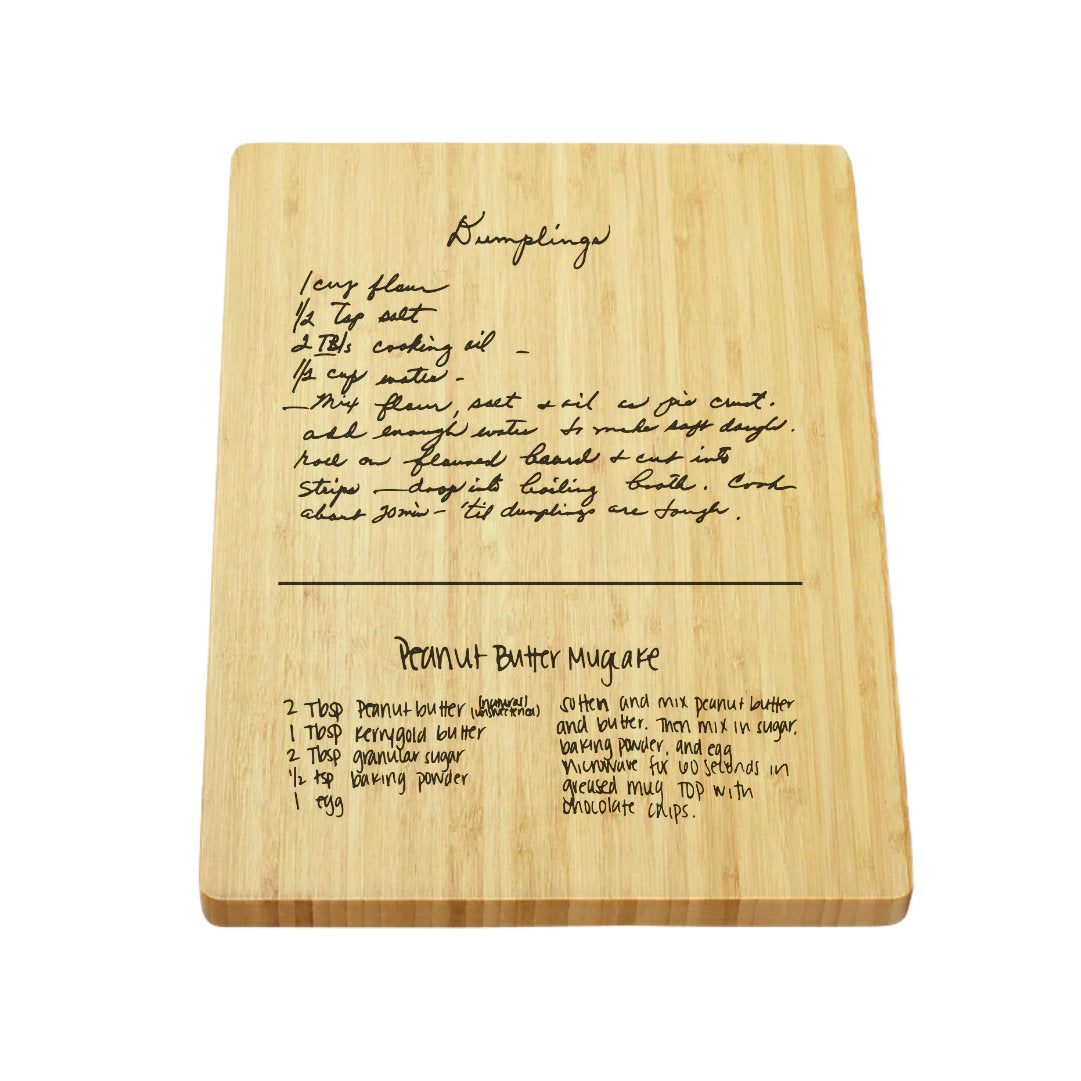 Dumplings
1 cup flour
1/2 Tsp salt
2 TBls cooking oil -
1/2 cup water -
- Mix flour, salt & oil as pie crust.
add enough water to make soft dough.
Roll on floured board & cut into
strips - drop into boiling broth. Cook
about 20 min - 'til dumplings are tough.
Peanut Butter Mugcake
2 Tbsp Peanut butter (natural) (unsweetened)
1 Tbsp Kerrygold butter
2 Tbsp granular sugar
1/2 tsp baking powder
1 egg
soften and mix peanut butter
and butter. Then mix in sugar,
baking powder, and egg
microwave for 60 seconds in
greased mug TOP with
chocolate chips.